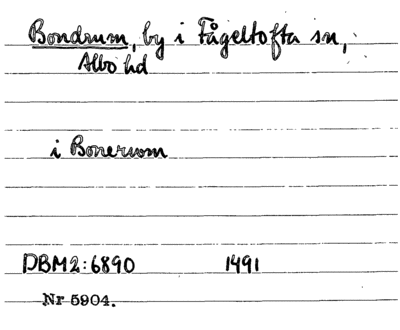 Bondrum, by i Fågeltofta sn,
Albo hd
i Bonerwom
DBM2:6890 1491
Nr 5904.